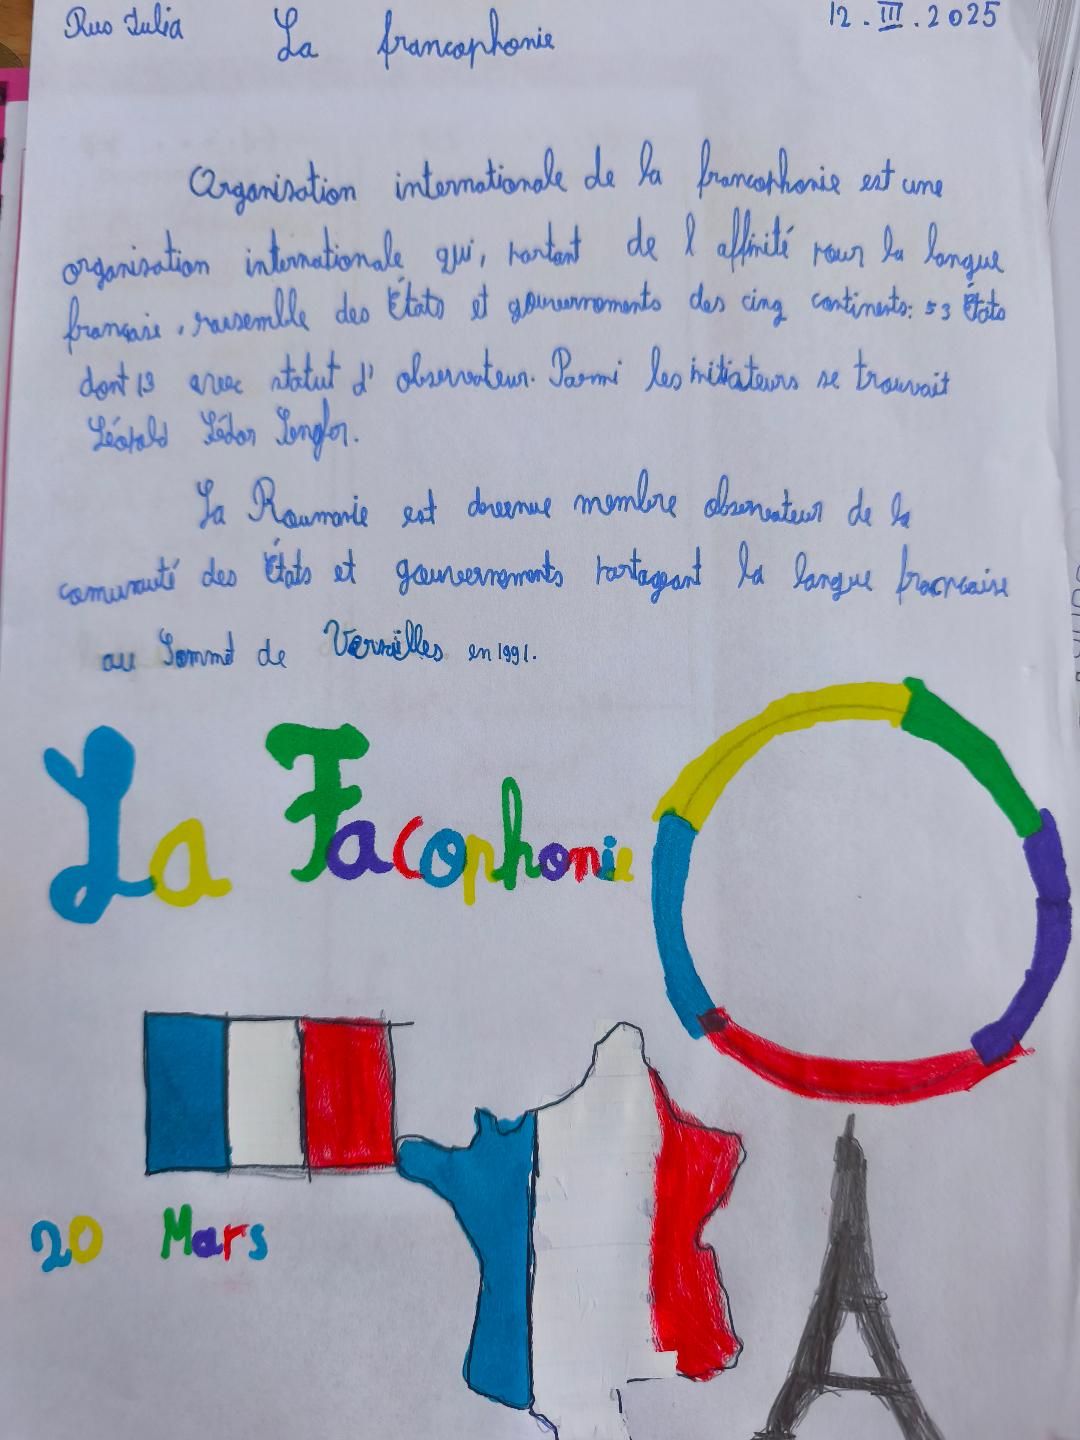 Rus Iulia La francophonie 12.III.2025
Organisation internationale de la francophonie est une
organisation internationale qui, partant de l affinité pour la langue
française, rassemble des États et gouvernements des cinq continents: 53 États
dont 13 avec statut d' observateur. Parmi les initiateurs se trouvait
Léopold Sédar Senghor.
La Roumanie est devenue membre observateur de la
comunauté des États et gouvernements partageant la langue française
au Sommet de Versailles en 1991.
La Facophonie
20 Mars